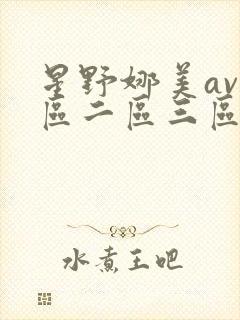 星野娜美av
區二區三區
水煮王吧